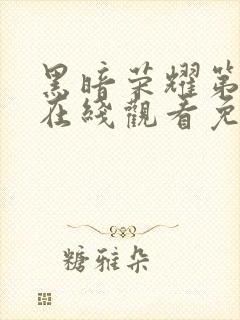 黑暗荣耀第
在綫觀看免
糖雅朵